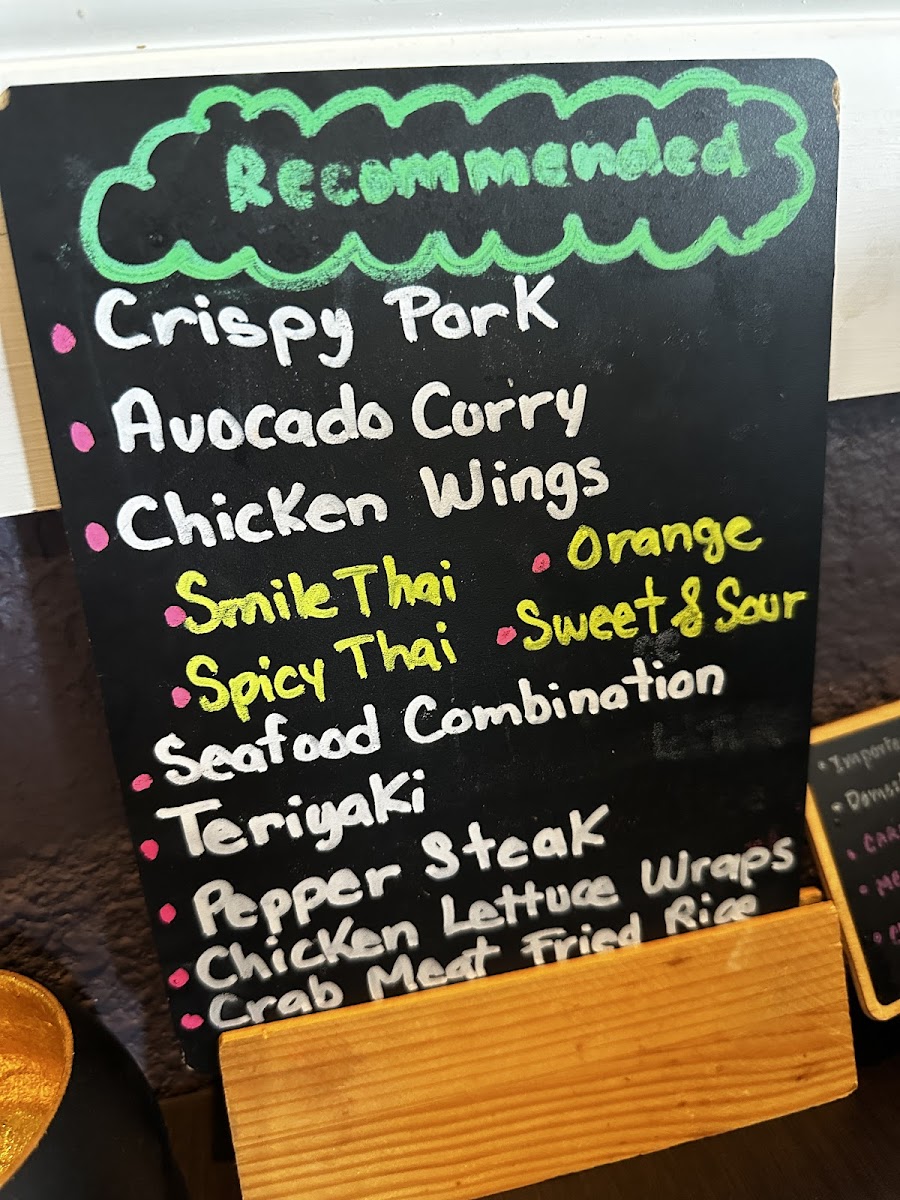 Recommended
• Crispy Pork
• Avocado Curry
• Chicken Wings
• Smile Thai • Orange
• Spicy Thai • Sweet & Sour
• Seafood Combination
• Teriyaki
• Pepper Steak
• Chicken Lettuce Wraps
• Crab Meat Fried Rice